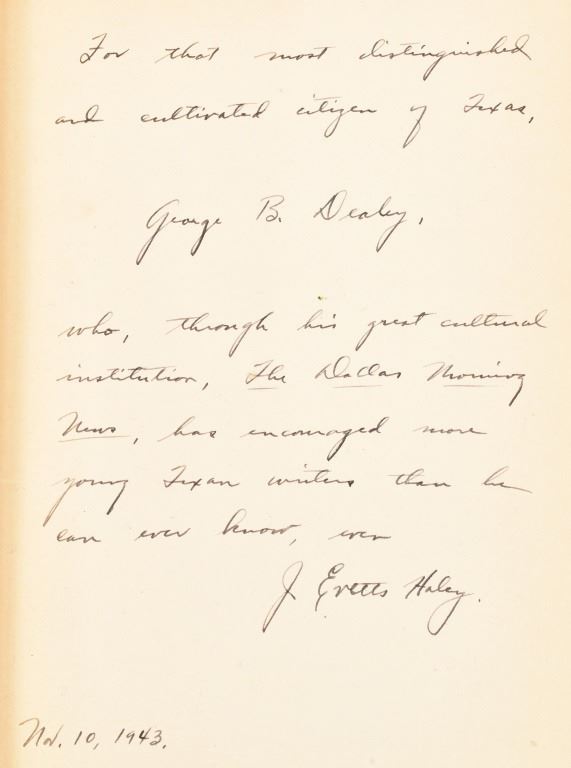 For that most distinguished
and cultivated citizen of Texas,
George B. Dealey,
who, through his great cultural
institution, The Dallas Morning
News, has encouraged more
young Texan writers than he
can ever know, even
J Evetts Haley.
Nov. 10, 1943.